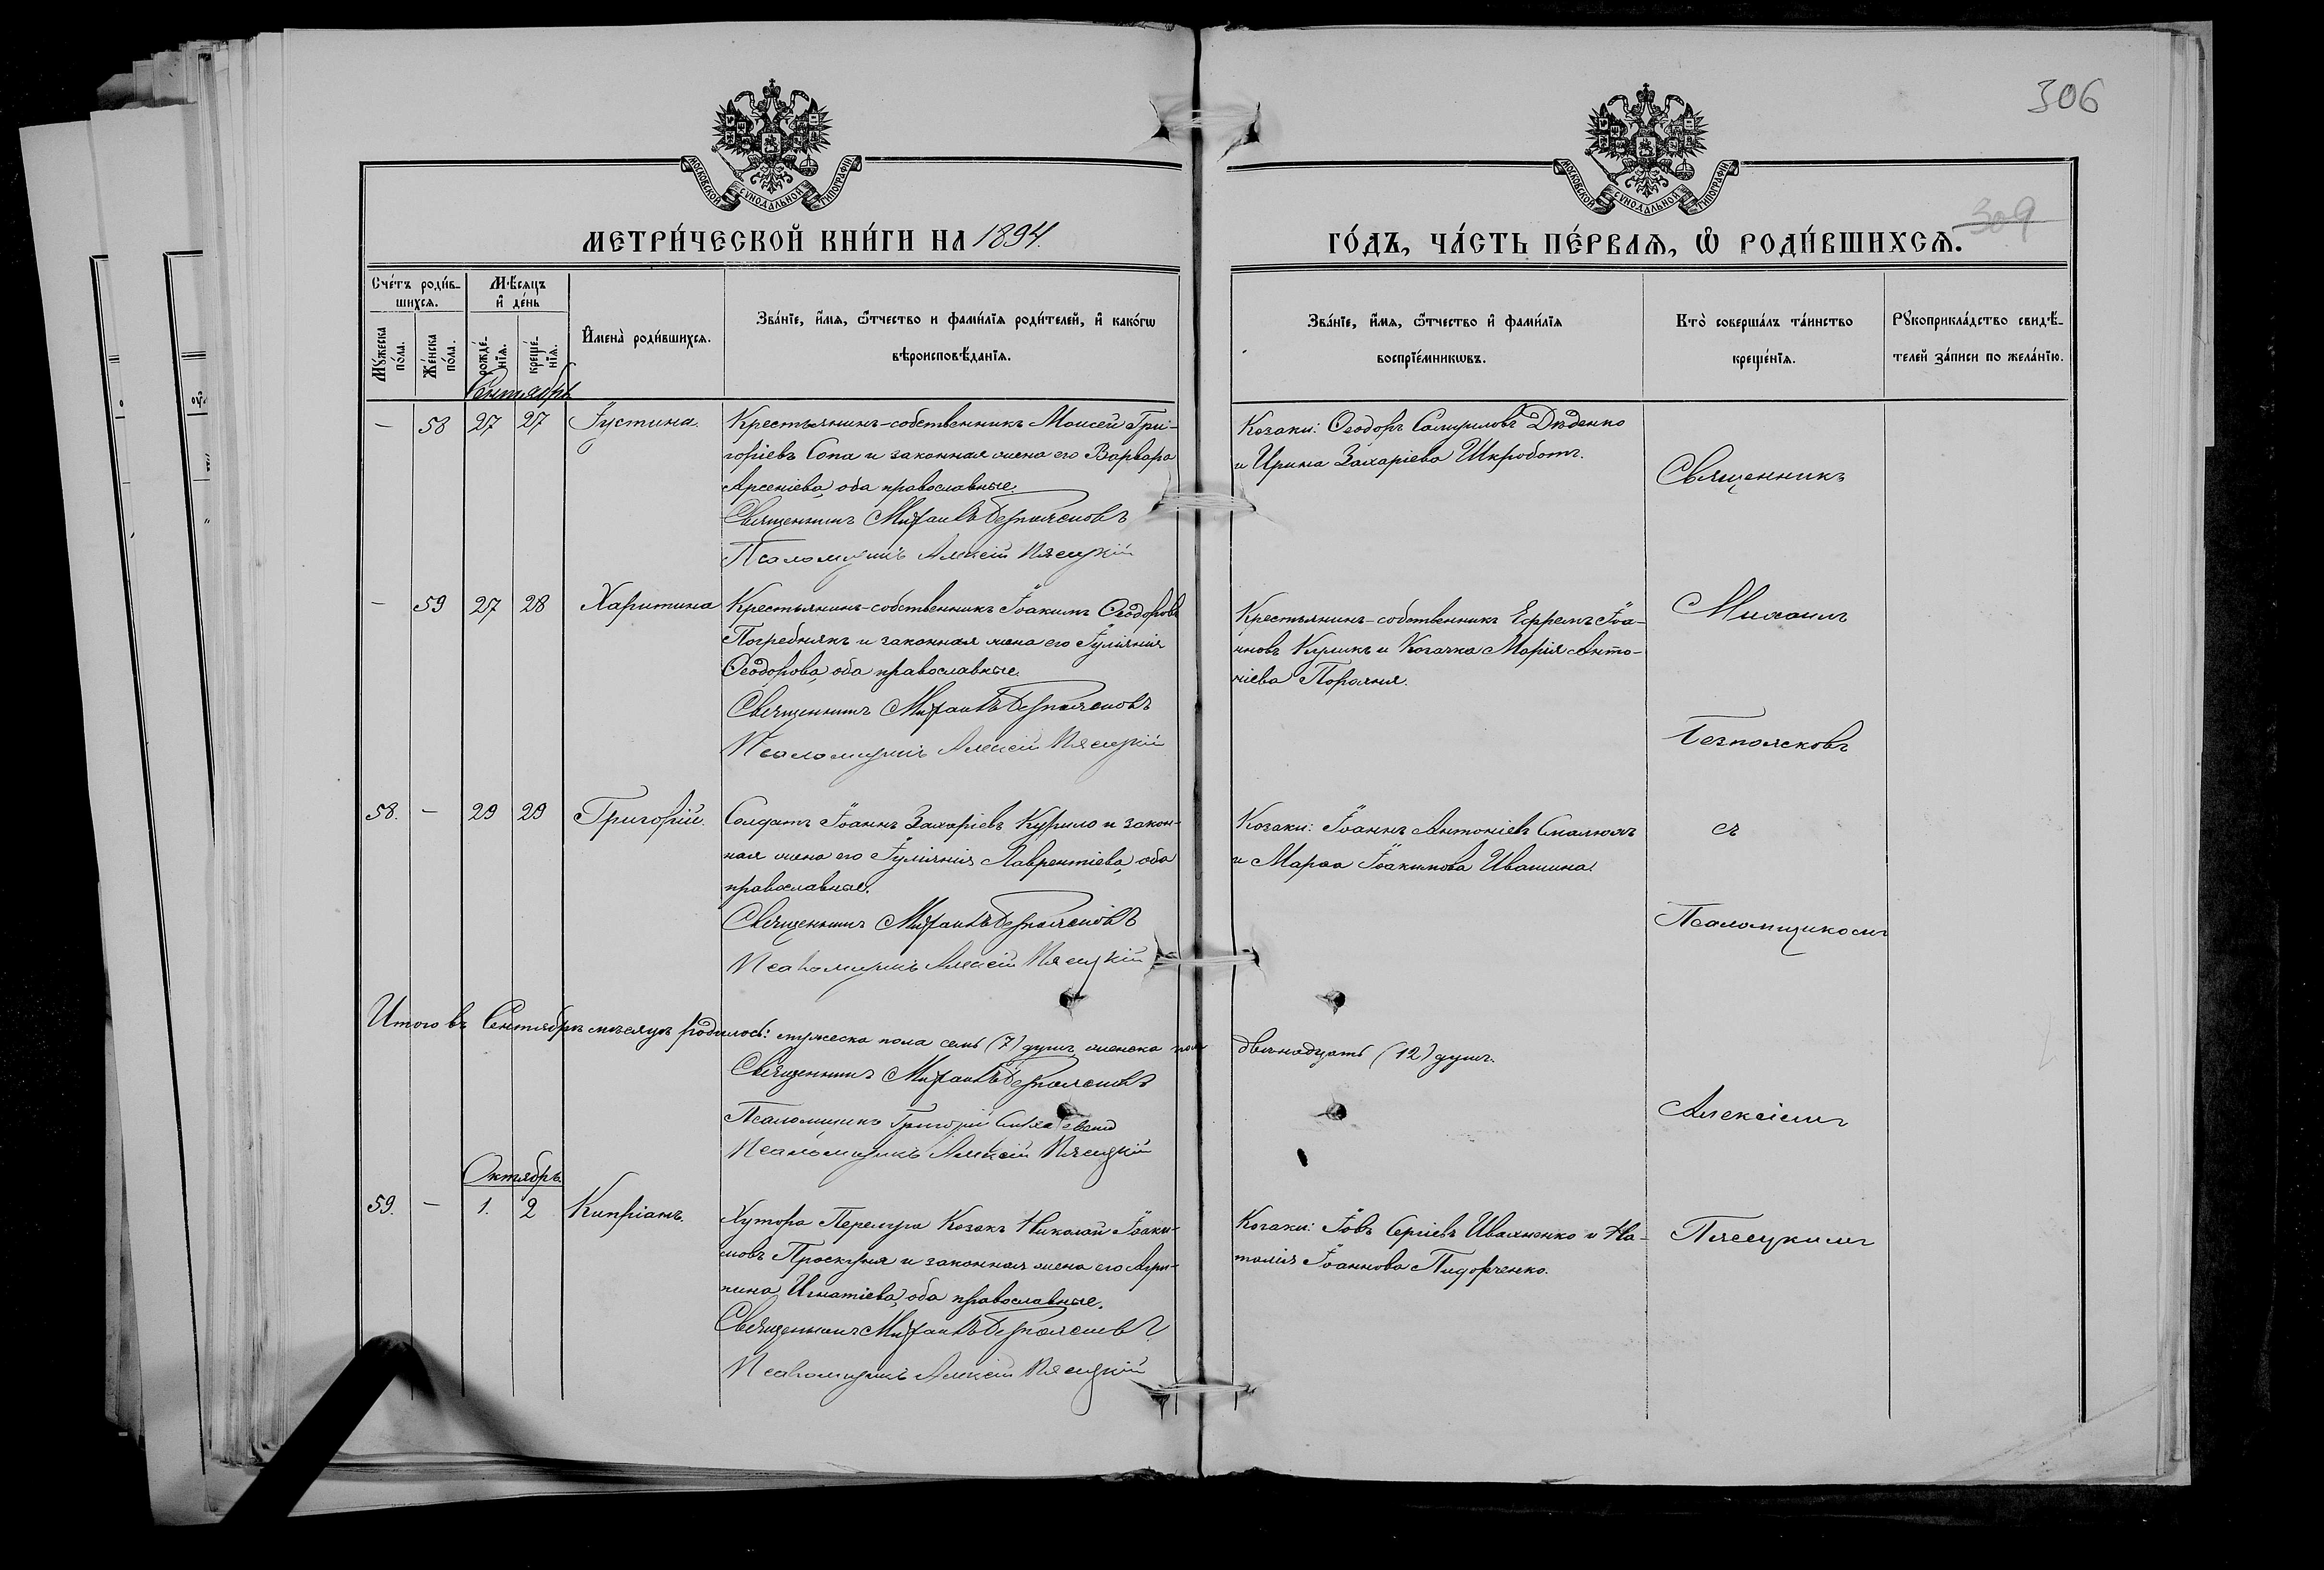 306
МОСКОВСКОЙ СУНОДАЛЬНОЙ ТИПОГРАФІИ
МОСКОВСКОЙ СУНОДАЛЬНОЙ ТИПОГРАФІИ
309
МЕТРИ́ЧЕСКОЙ КНИ́ГИ НА 1894.
ГО́ДЪ, ЧА́СТЬ ПЕ́РВАѦ, Ѽ РОДИ́ВШИХСѦ.
Сче́тъ роди́в-
шихсѧ.
Мꙋ́жеска по́ла.
Же́нска по́ла.
Мѣ́сѧцъ
и҆ де́нь
рожде́-
нїѧ.
креще́-
нїѧ.
И҆мена̀ роди́вшихсѧ.
Зва́нїе, и҆́мѧ, ѻ҆́тчество и фами́лїѧ роди́телей, и҆ како́гѡ
вѣроисповѣ́данїѧ.
Зва́нїе, и҆́мѧ, ѻ҆́тчество и҆ фами́лїѧ
воспрїе́мникѡвъ.
Кто̀ соверша́лъ та́инство
креще́нїѧ.
Рꙋкоприкла́дство свидѣ́-
телей за́писи по жела́нїю.
Сентябрь
— 58 27 27 Іустина. Крестьянинъ-собственникъ Моисей Гри-
горіевъ Сопа и законная жена его Варвара
Арсеніева, оба православные.
Священникъ Михаилъ Безпоясковъ
Псаломщикъ Алексій Пясецкій
Козаки: Ѳеодоръ Самуиловъ Дѣденко
и Ирина Захаріева Шкроботъ.
Священникъ
— 59 27 28 Харитина Крестьянинъ-собственникъ Іоакимъ Ѳеодоровъ
Погребнякъ и законная жена его Іуліянія
Ѳеодорова, оба православные.
Священникъ Михаилъ Безпоясковъ
Псаломщикъ Алексій Пясецкій
Крестьянинъ-собственникъ Ефремъ Іоа-
нновъ Куликъ и Козачка Марія Анто-
ніева
Михаилъ
Безпоясковъ
58. — 29 29 Григорій. Солдатъ Іоаннъ Захаріевъ Курило и закон-
ная жена его Іуліянія Лаврентіева, оба
православные.
Священникъ Михаилъ Безпоясковъ
Псаломщикъ Алексій Пясецкій
Козаки: Іоаннъ Антоніевъ
и Марѳа Іоакимова Ивашина.
съ
Псаломщикомъ
Итого въ Сентябрѣ мѣсяцѣ родилось: мужеска пола семь (7) душъ, женска пола двѣнадцать (12) душъ.
Священникъ Михаилъ Безпоясковъ
Псаломщикъ Григорій
Псаломщикъ Алексій Пясецкій
Алексіемъ
Октябрь
59. — 1. 2 Кипріанъ. Хутора Козакъ Николай Іоаки-
мовъ Проскурня и законная жена его Агри-
пина Игнатіева, оба православные.
Священникъ Михаилъ Безпоясковъ
Псаломщикъ Алексій Пясецкій
Козаки: Іовъ Сергіевъ Ивахненко и На-
талія Іоаннова Пидорченко.
Пясецкимъ